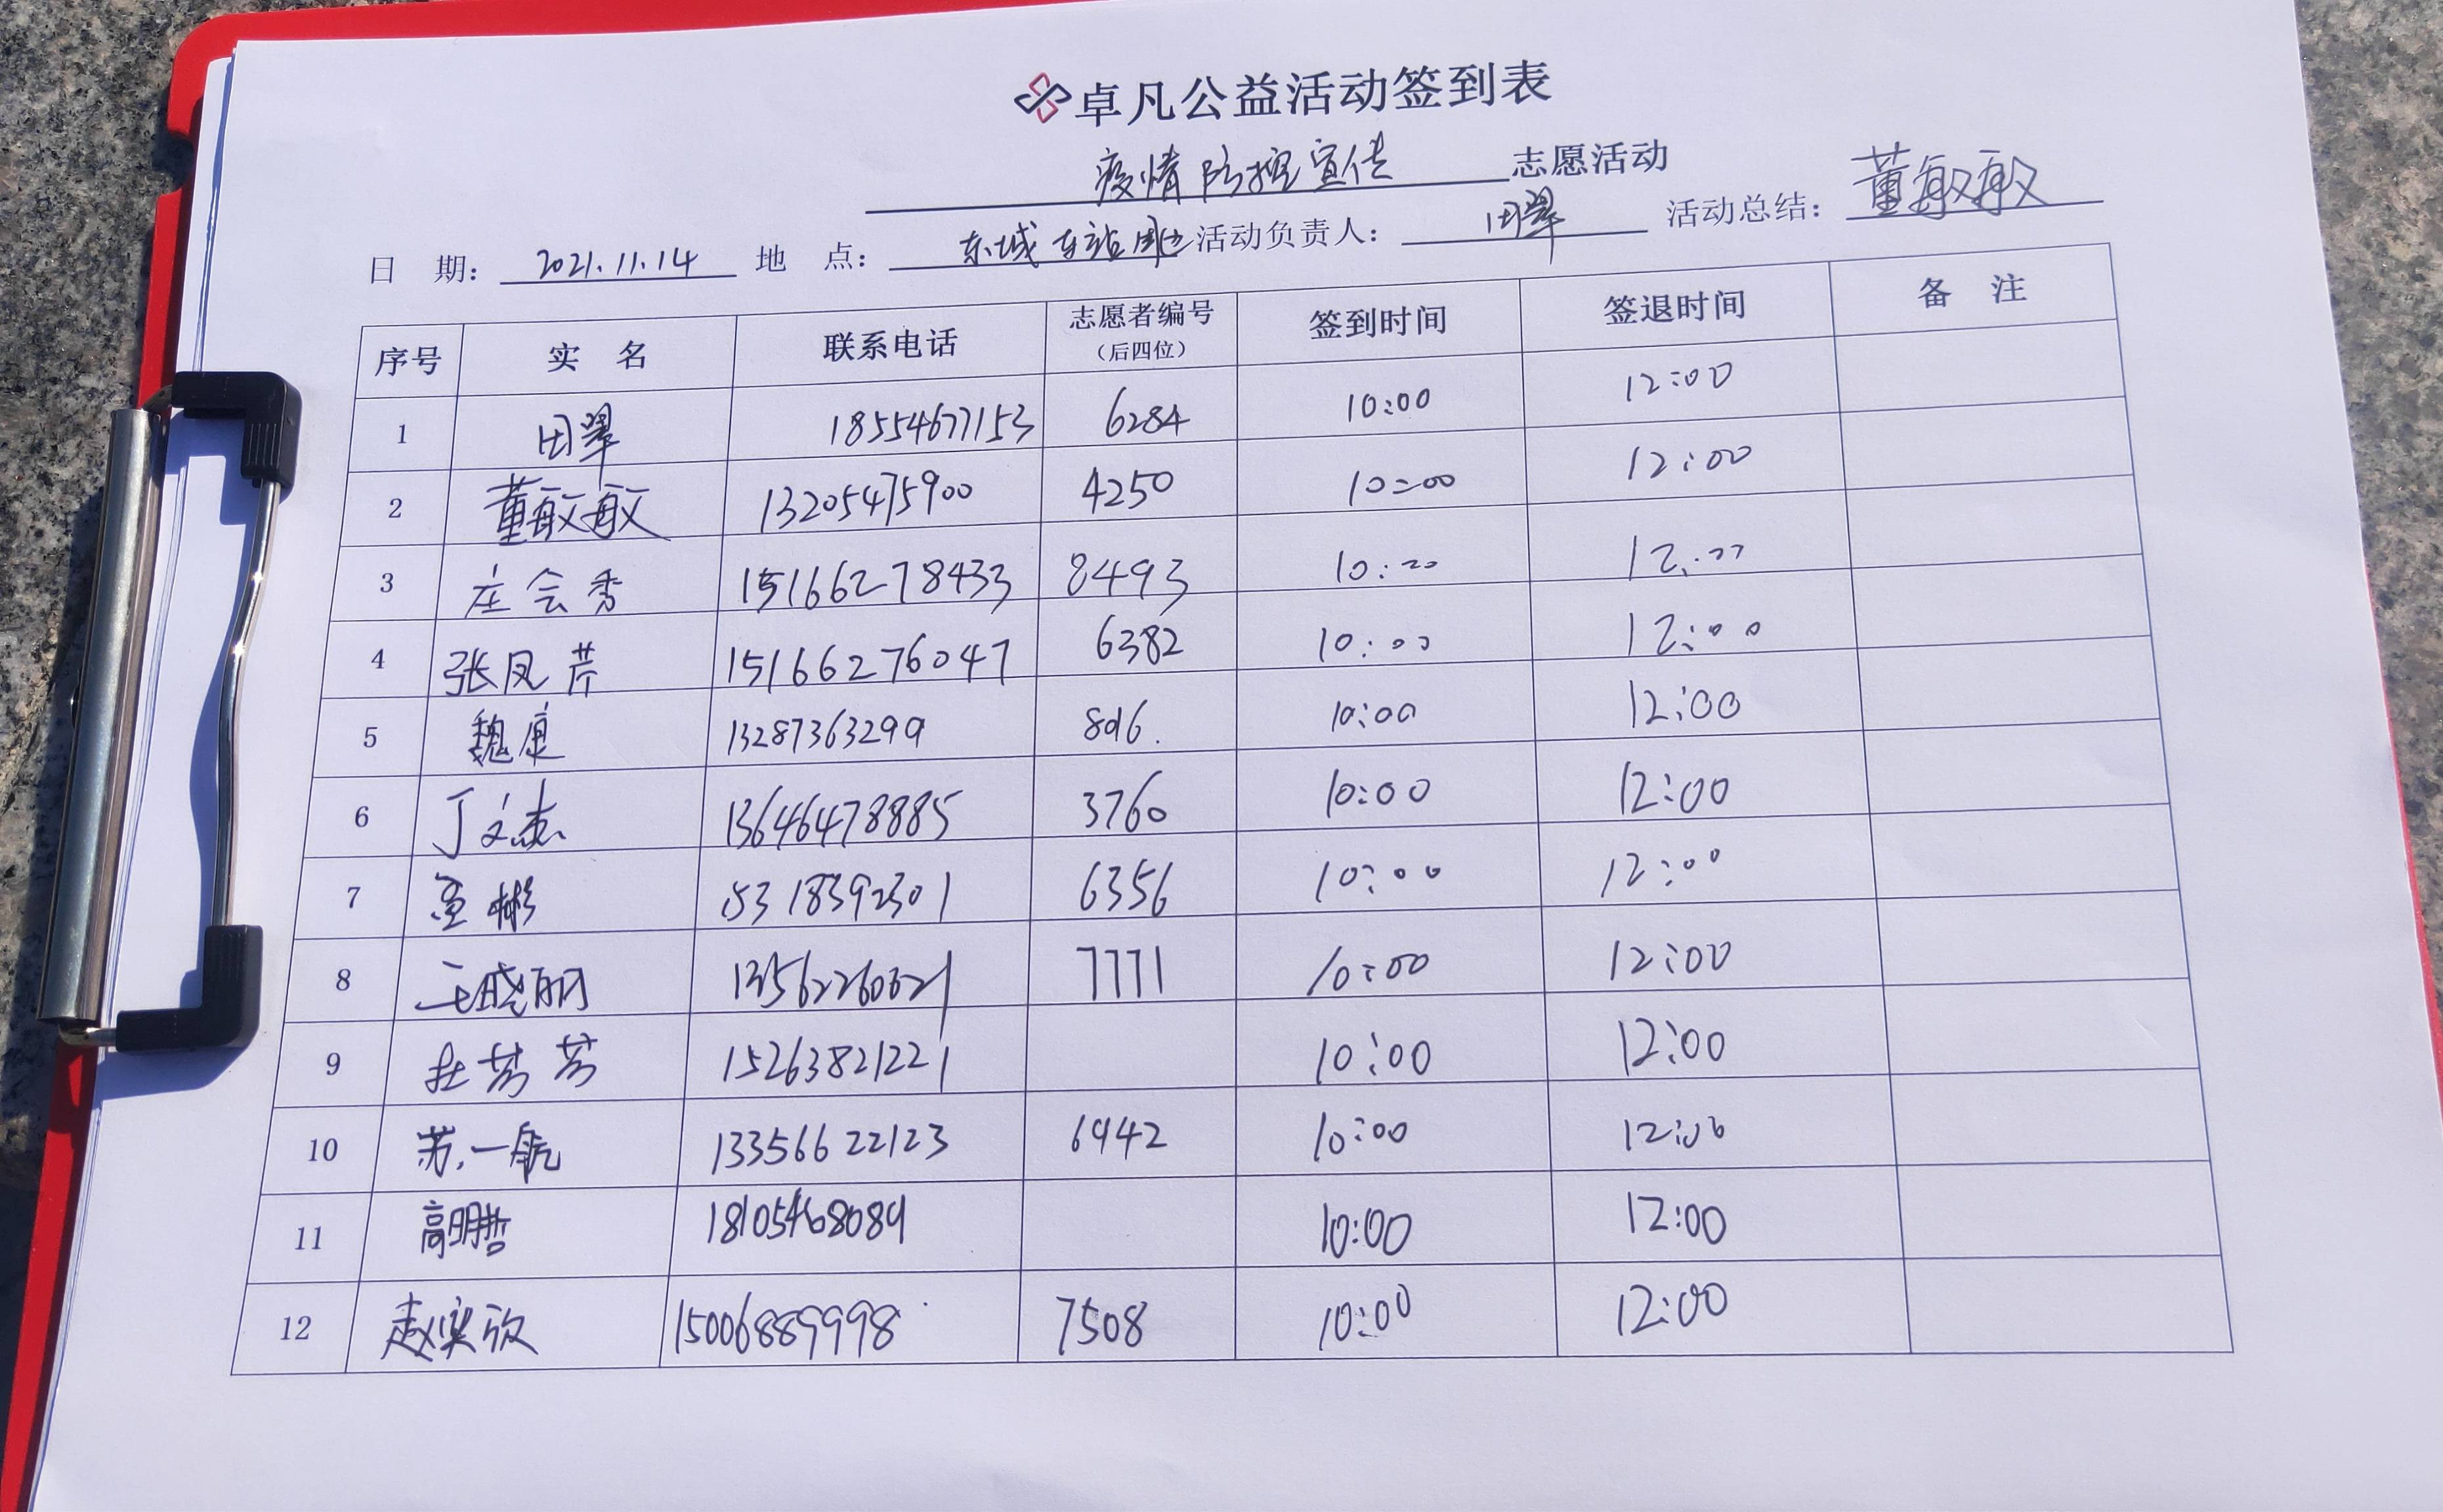 卓凡公益活动签到表
疫情防控宣传 志愿活动
日 期: 2021.11.14 地 点: 东城车站周边 活动负责人: 田翠 活动总结: 董敏敏
序号 实 名 联系电话 志愿者编号(后四位) 签到时间 签退时间 备 注
1 田翠 18554677153 6284 10:00 12:00
2 董敏敏 13205475900 4250 10:00 12:00
3 庄会香 15166278433 8493 10:00 12:00
4 张凤芹 15166276047 6382 10:00 12:00
5 魏康 13287363299 10:00 12:00
6 丁文志 13646478885 3760 10:00 12:00
7 彬 6356 10:00 12:00
8 王晓丽 13562260621 7771 10:00 12:00
9 杜芳芳 15263821221 10:00 12:00
10 苏一航 13356622123 6942 10:00 12:00
11 高明哲 18105468089 10:00 12:00
12 赵奕欣 15006889998 7508 10:00 12:00